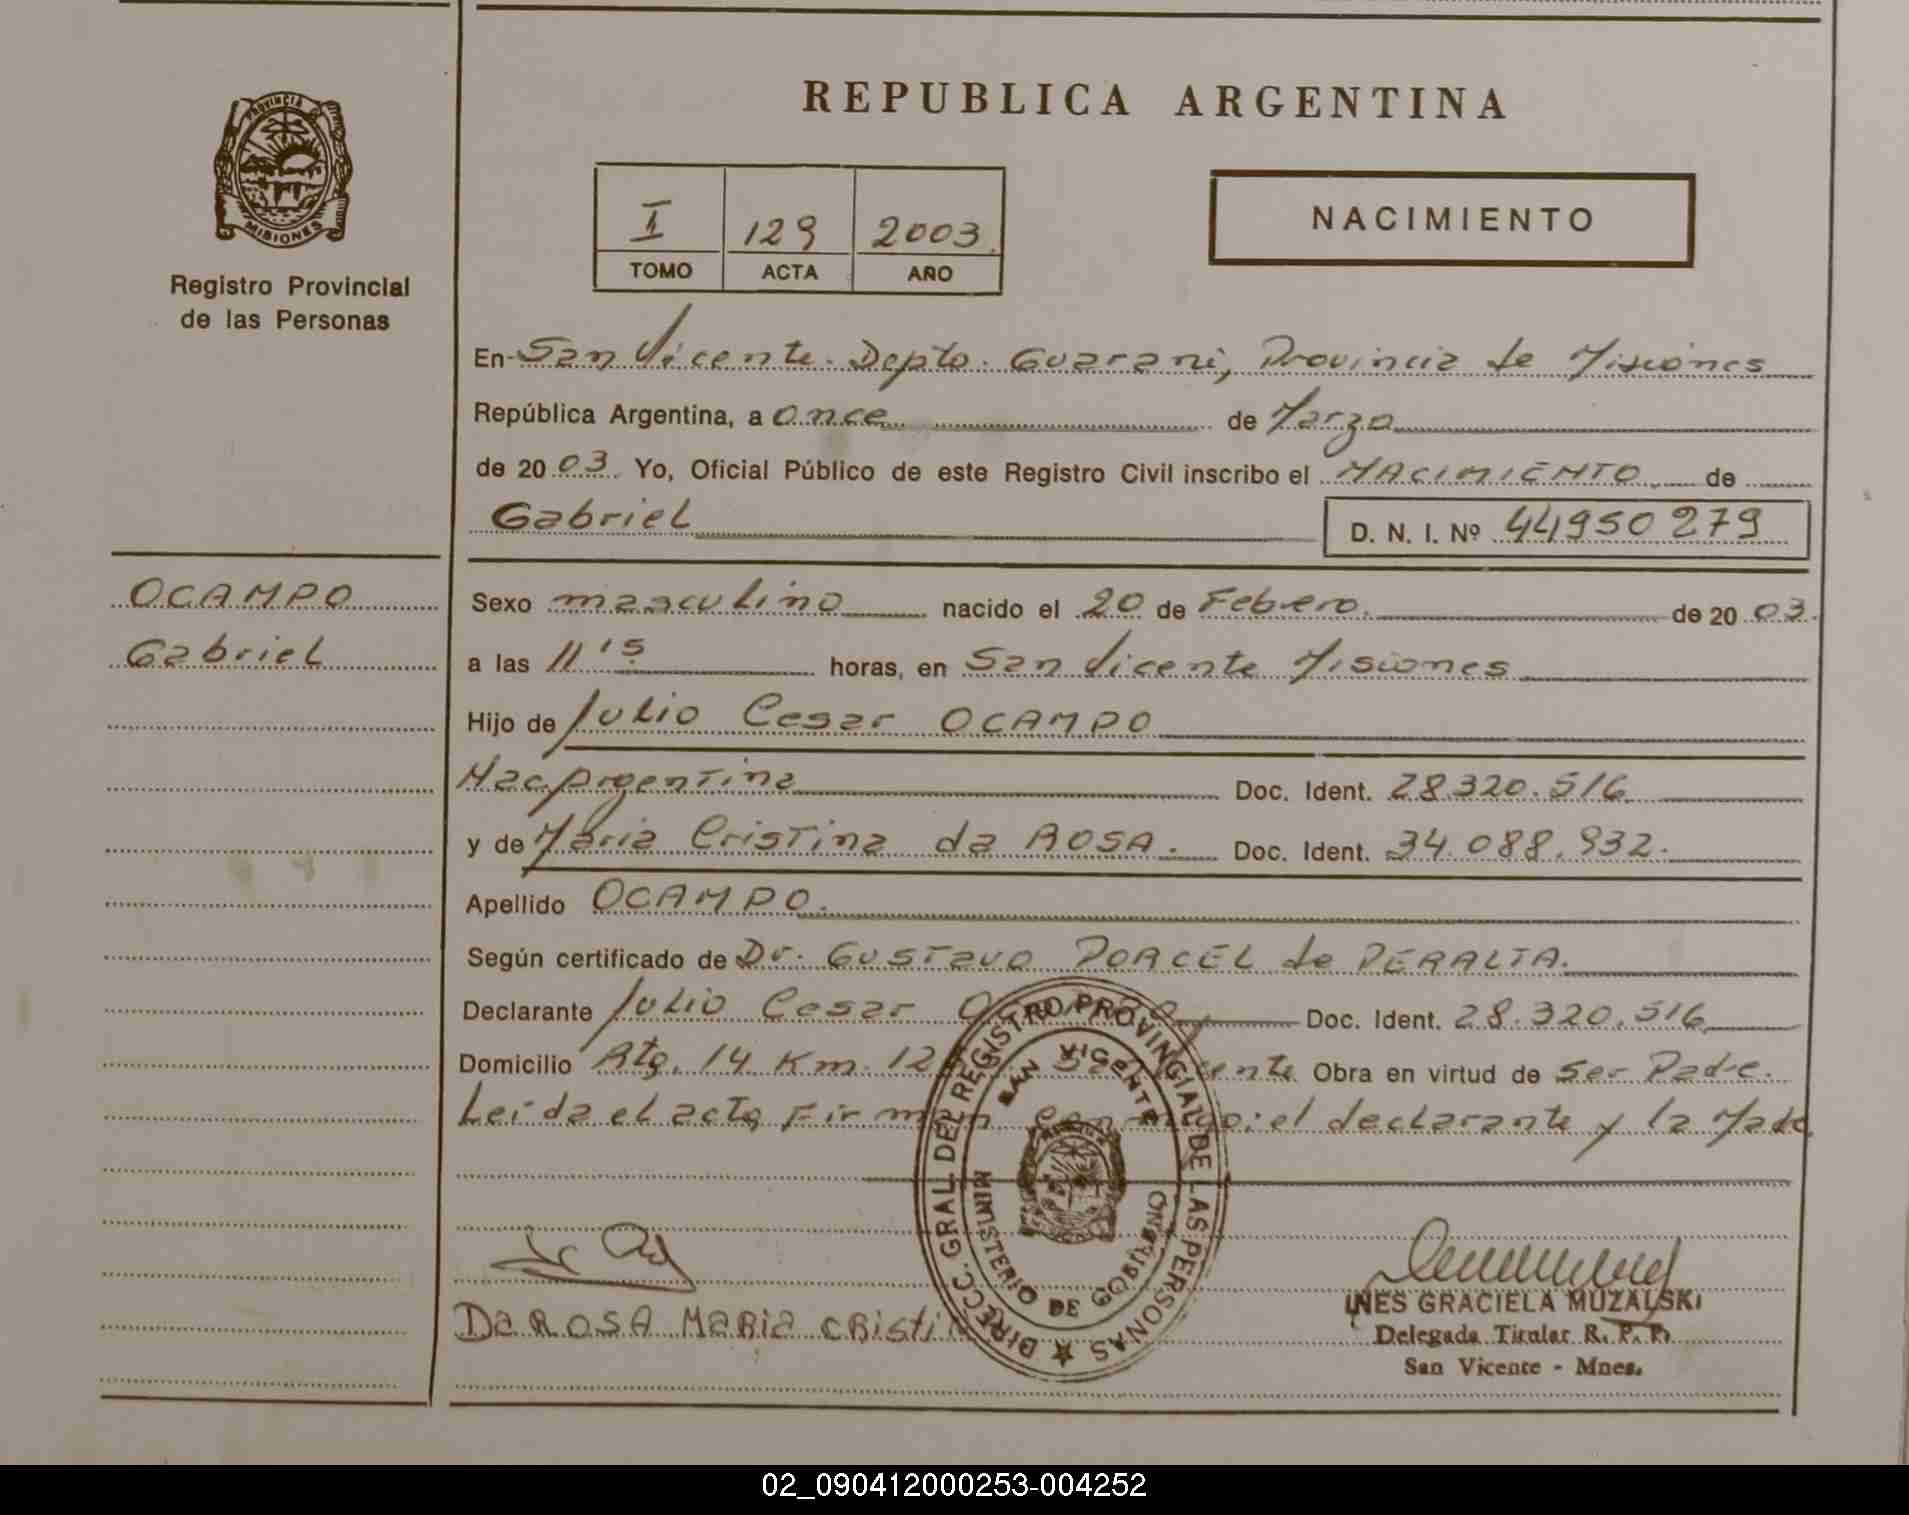 REPUBLICA ARGENTINA
PROVINCIA
MISIONES
Registro Provincial
de las Personas
I 129 2003
TOMO ACTA AÑO
NACIMIENTO
En San Vicente. Depto. Guarani, Provincia de Misiones
República Argentina, a once de Marzo
de 20 03 Yo, Oficial Público de este Registro Civil inscribo el NACIMIENTO de
Gabriel D. N. I. Nº 44950279
OCAMPO
Gabriel
Sexo masculino nacido el 20 de Febrero de 20 03.
a las 11'15 horas, en San Vicente Misiones
Hijo de Julio Cesar OCAMPO
Nac Argentina Doc. Ident. 28.320.516
y de Maria Cristina da ROSA. Doc. Ident. 34.088.932.
Apellido OCAMPO.
Según certificado de Dr. GUSTavo PORCEL de PERALTA.
Declarante Julio Cesar Doc. Ident. 28.320.516
Domicilio Rta. 14 Km. 12 Obra en virtud de ser Padre.
Leida el acta, Firman el declarante y la Madre
DIRECC. GRAL. DEL REGISTRO PROVINCIAL DE LAS PERSONAS
SAN VICENTE
MINISTERIO DE GOBIERNO
Da ROSA MaRia CRisti
INES GRACIELA MUZALSKI
Delegada Titular R. P. P.
San Vicente - Mnes.
02_090412000253-004252